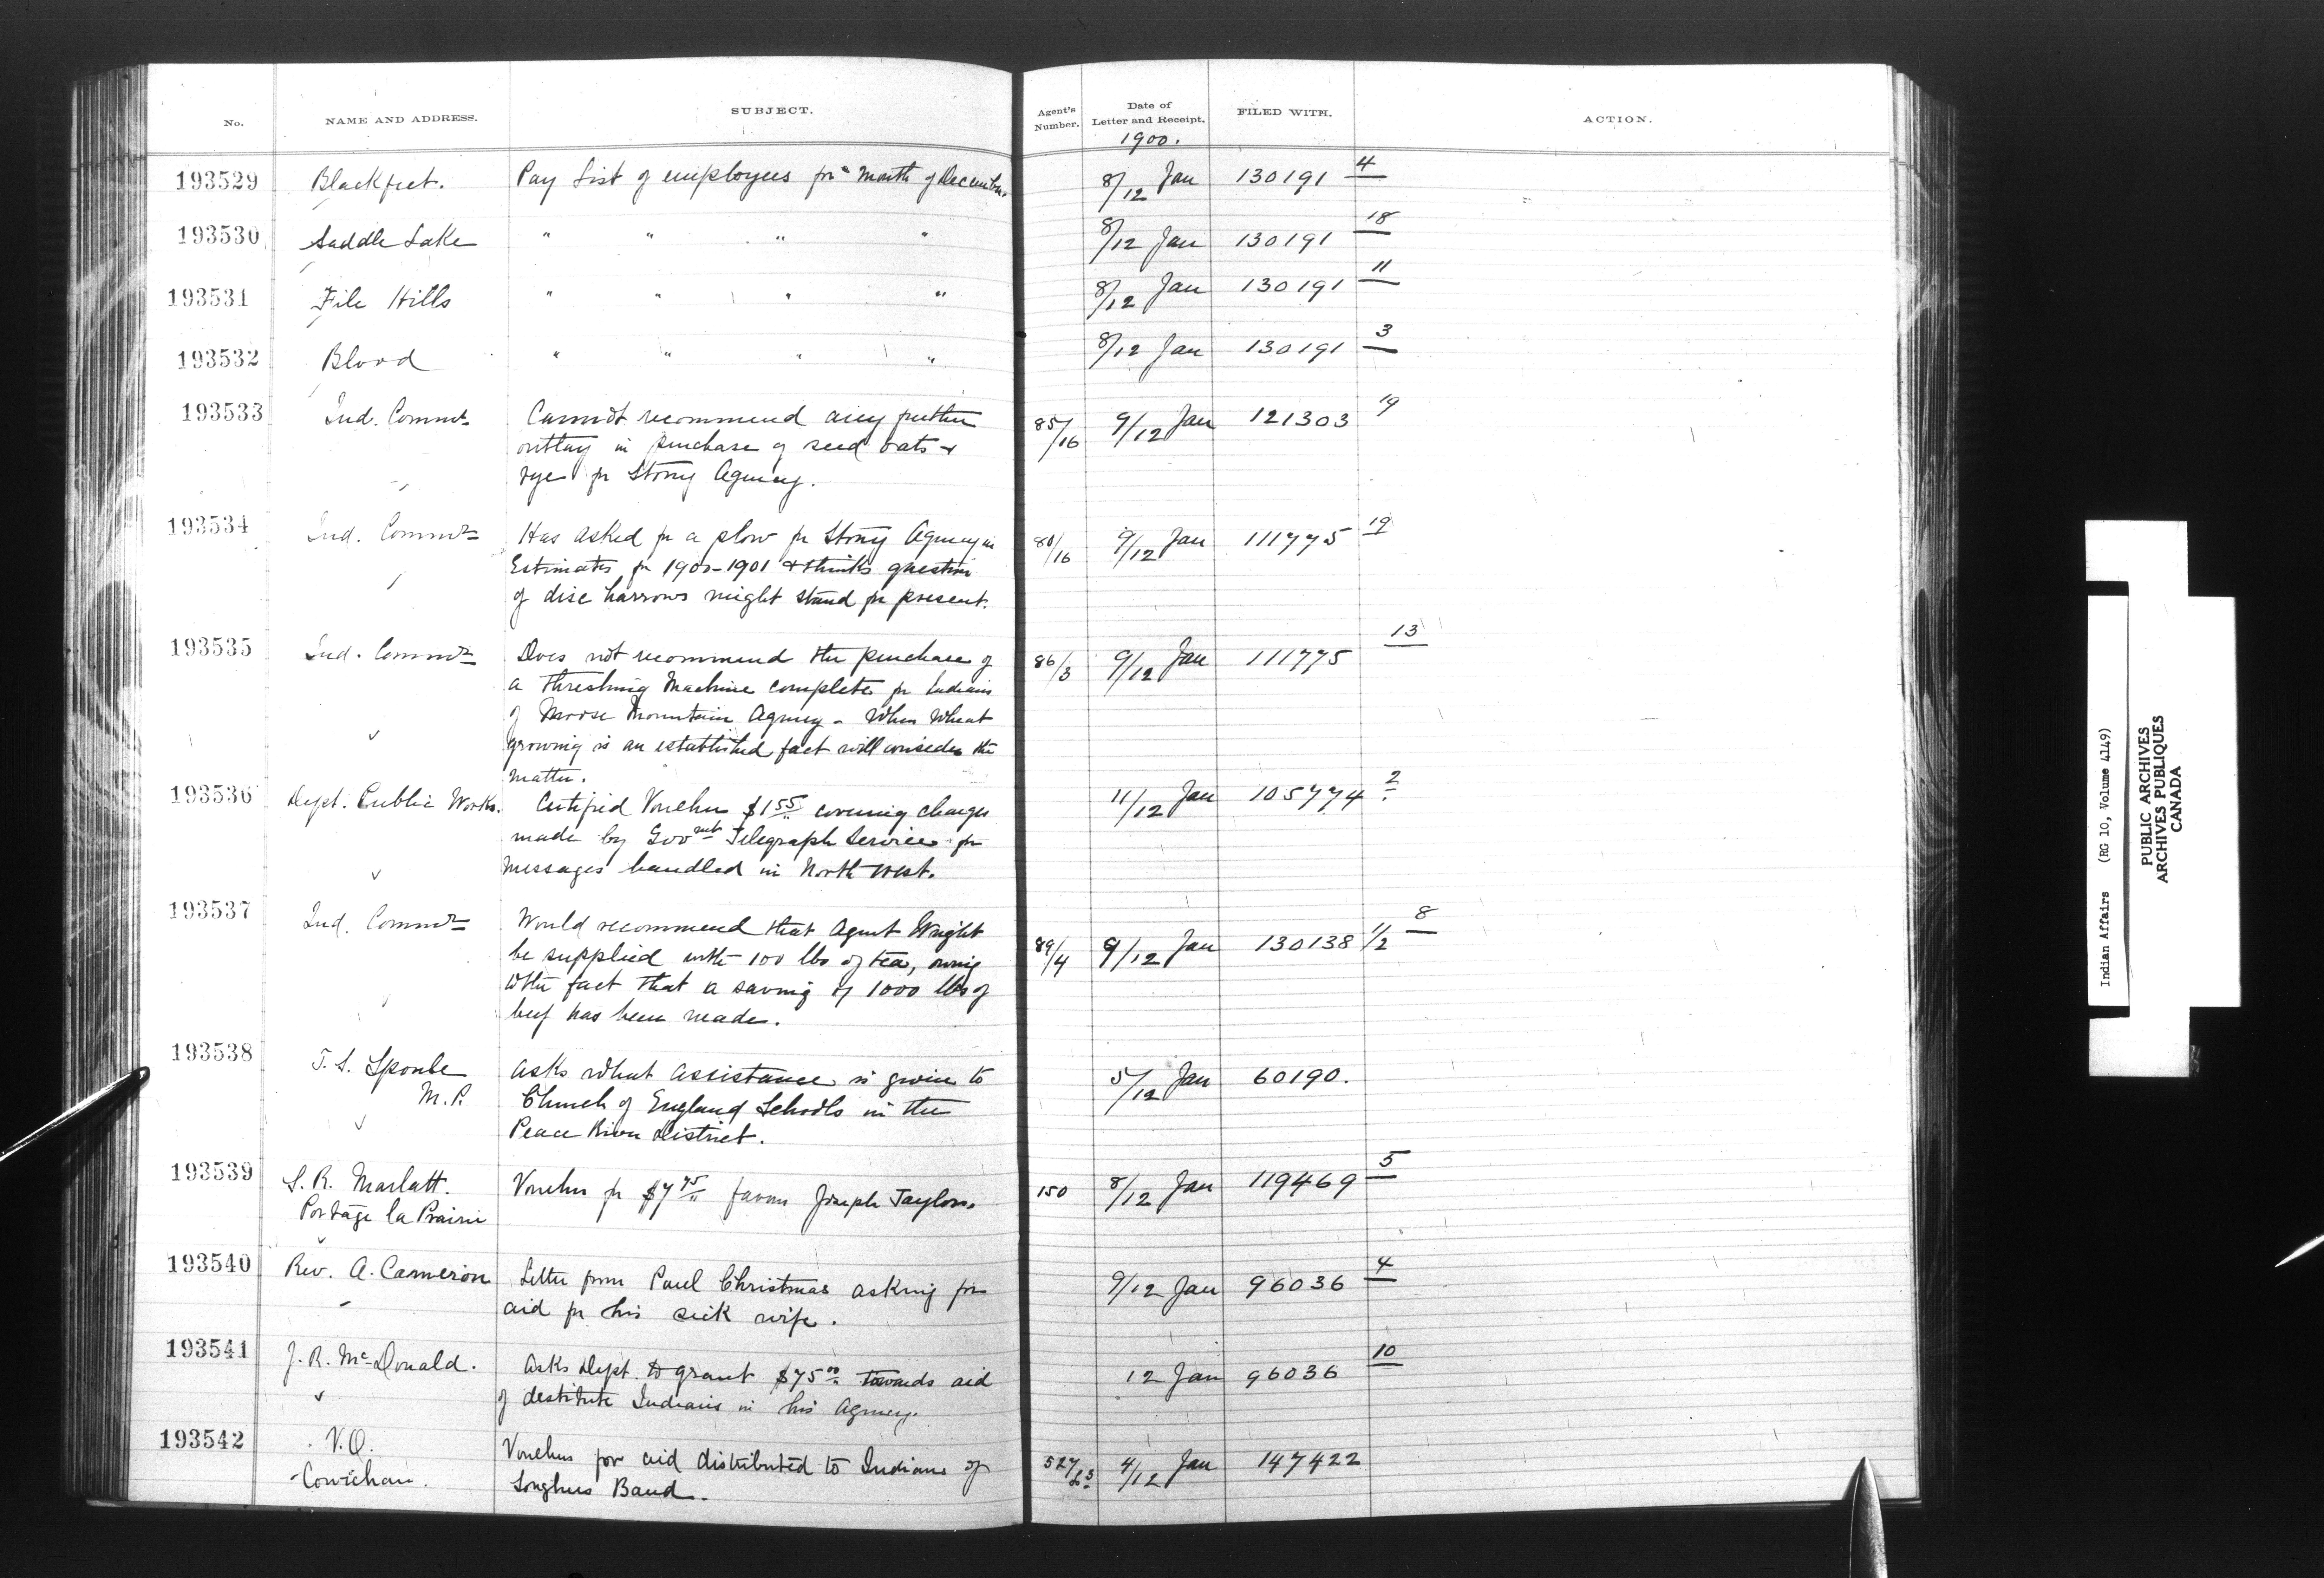 No. NAME AND ADDRESS. SUBJECT. Agent's Number. Date of Letter and Receipt. FILED WITH. ACTION.
1900.
193529 Blackfeet. Pay List of employees for " Month of December. 8/12 Jan 130191 4
193530 Saddle Lake " " " " 8/12 Jan 130191 18
193531 File Hills " " " " 8/12 Jan 130191 11
193532 Blood " " " " 8/12 Jan 130191 3
193533 Ind. Commr Cannot recommend any further 85/16 9/12 Jan 121303 19
outlay in purchase of seed oats &
rye for Stony Agency.
193534 Ind. Commr Has asked for a plow for Stony Agency in 80/16 9/12 Jan 111775 19
Estimates for 1900-1901 & thinks question
of disc harrows might stand for present.
193535 Ind. Commr Does not recommend the purchase of 86/3 9/12 Jan 111775 13
a threshing Machine complete for Indians
of Moose Mountain Agency - When Wheat
growing is an established fact will consider the
matter.
193536 Dept. Public Works. Certified Voucher $1 55 covering charges 11/12 Jan 105774 2
made by Govmt Telegraph Service for
messages handled in North West.
193537 Ind. Commr Would recommend that Agent Wright 89/4 9/12 Jan 130138 1/2 8
be supplied with 100 lbs of tea, owing
to the fact that a saving of 1000 lbs of
beef has been made.
193538 T. S. Sproule Asks what assistance is given to 5/12 Jan 60190.
M.P. Church of England Schools in the
Peace River District.
193539 S. R. Marlatt. Voucher for $7 75 favour Joseph Taylor. 150 8/12 Jan 119469 5
Portage la Prairie
193540 Rev. A. Cameron Letter from Paul Christmas asking for 9/12 Jan 96036 4
aid for his sick wife.
193541 J. R. McDonald. Asks Dept. to grant $75 00 towards aid 12 Jan 96036 10
of destitute Indians in his Agency.
193542 V.O. Vouchers for aid distributed to Indians of 527/ 4/12 Jan 147422
Cowichan. Songhees Band.
Indian Affairs (RG 10, Volume 4149)
PUBLIC ARCHIVES
ARCHIVES PUBLIQUES
CANADA